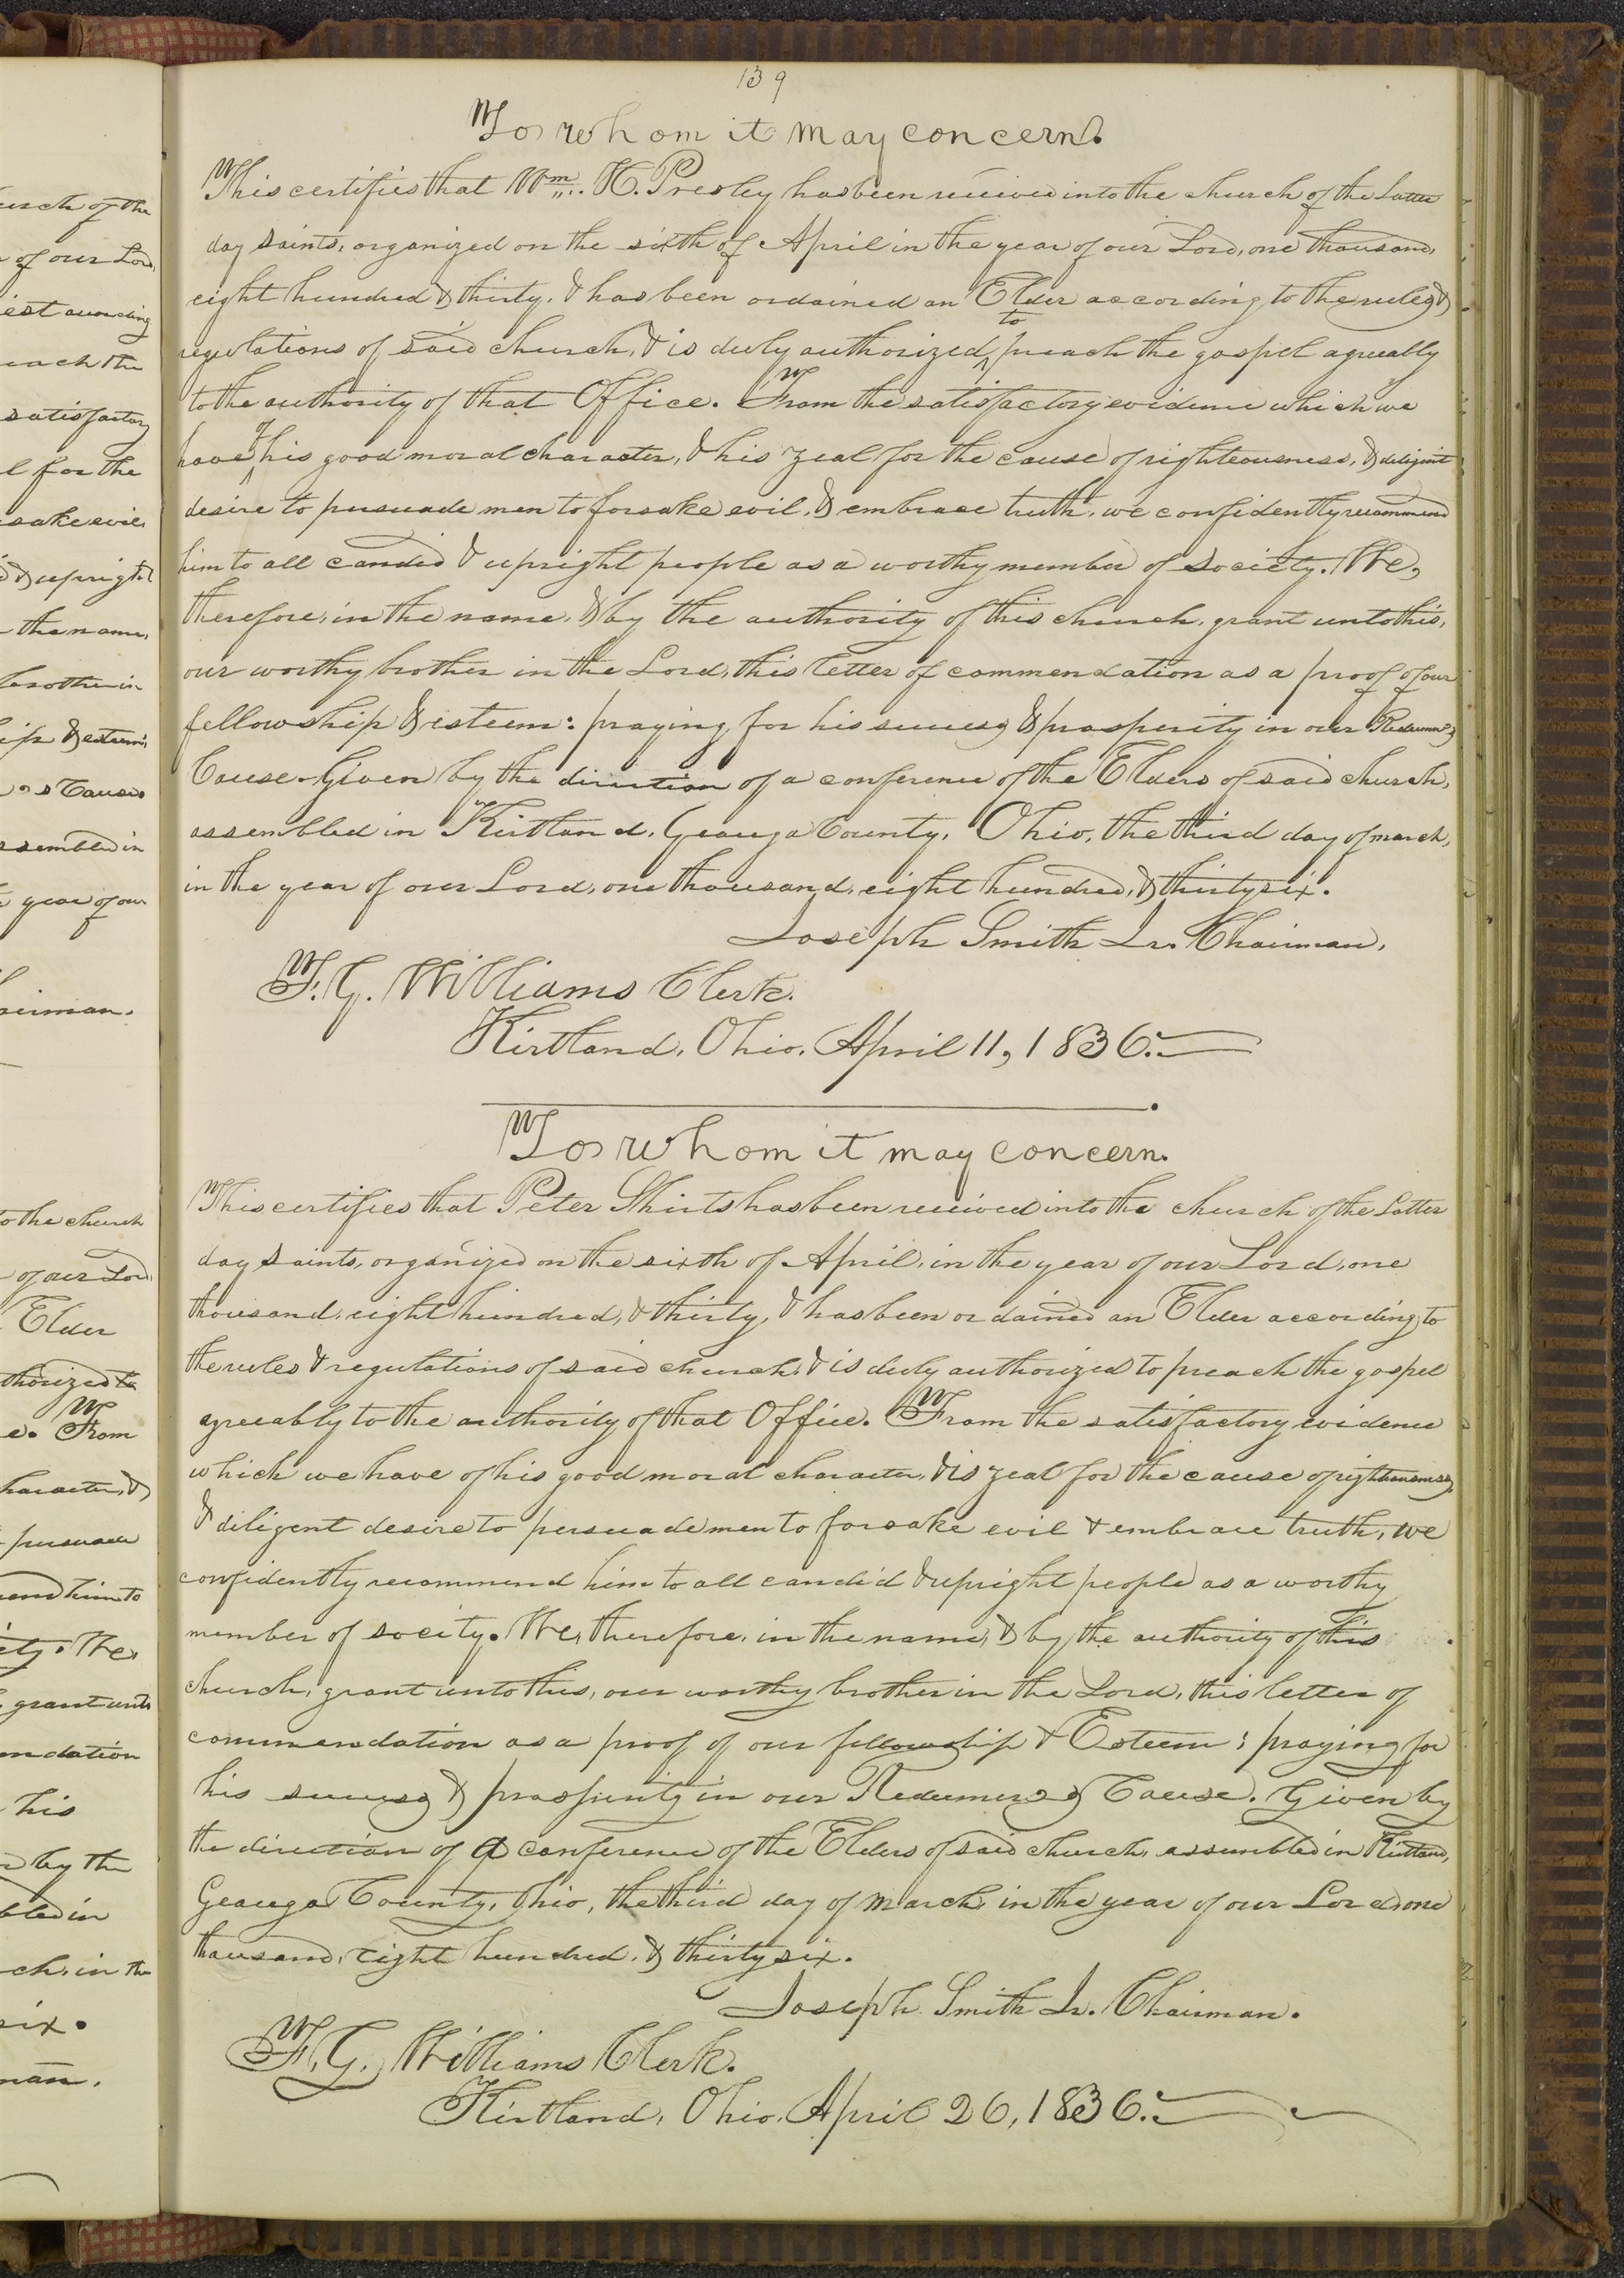 139
To whom it may concern.
This certifies that Wm. H. Presley has been received into the church of the Latter
day saints, organized on the sixth of April in the year of our Lord, one thousand,
eight hundred & thirty, & has been ordained an Elder according to the rules &
to
regulations of said church, & is duly authorized ^ preach the gospel agreeably
to the authority of that Office. From the satisfactory evidence which we
have of his good moral character, & his zeal for the cause of righteousness, & diligent
desire to persuade men to forsake evil, & embrace truth, we confidently recommend
him to all candid & upright people as a worthy member of society. We,
therefore, in the name, & by the authority of this church, grant unto this,
our worthy brother in the Lord, this letter of commendation as a proof of our
fellowship & esteem: praying for his success & prosperity in our Redeemer's
Cause. Given by the direction of a conference of the Elders of said church,
assembled in Kirtland, Geauga County, Ohio, the third day of march,
in the year of our Lord, one thousand, eight hundred, & thirty six.
Joseph Smith Jr. Chairman,
F. G. Williams Clerk.
Kirtland, Ohio, April 11, 1836.
To whom it may concern.
This certifies that Peter Shirts has been received into the church of the Latter
day saints, organized on the sixth of April, in the year of our Lord, one
thousand, eight hundred, & thirty, & has been ordained an Elder according to
the rules & regulations of said church, & is duly authorized to preach the gospel
agreeably to the authority of that Office. From the satisfactory evidence
which we have of his good moral character, & is zeal for the cause of righteousness,
& diligent desire to persuade men to forsake evil & embrace truth, we
confidently recommend him to all candid & upright people as a worthy
member of soceity. We, therefore, in the name, & by the authority of this
church, grant unto this, our worthy brother in the Lord, this letter of
commendation as a proof of our fellowship & Esteem; praying for
his success & prosperity in our Redeemer's Cause. Given by
the direction of a conference of the Elders of said church, assembled in Kirtland,
Geauga County, Ohio, the third day of march, in the year of our Lord, one
thousand, eight hundred, & thirty six.
Joseph Smith Jr. Chairman.
F. G. Williams Clerk.
Kirtland, Ohio, April 26, 1836.